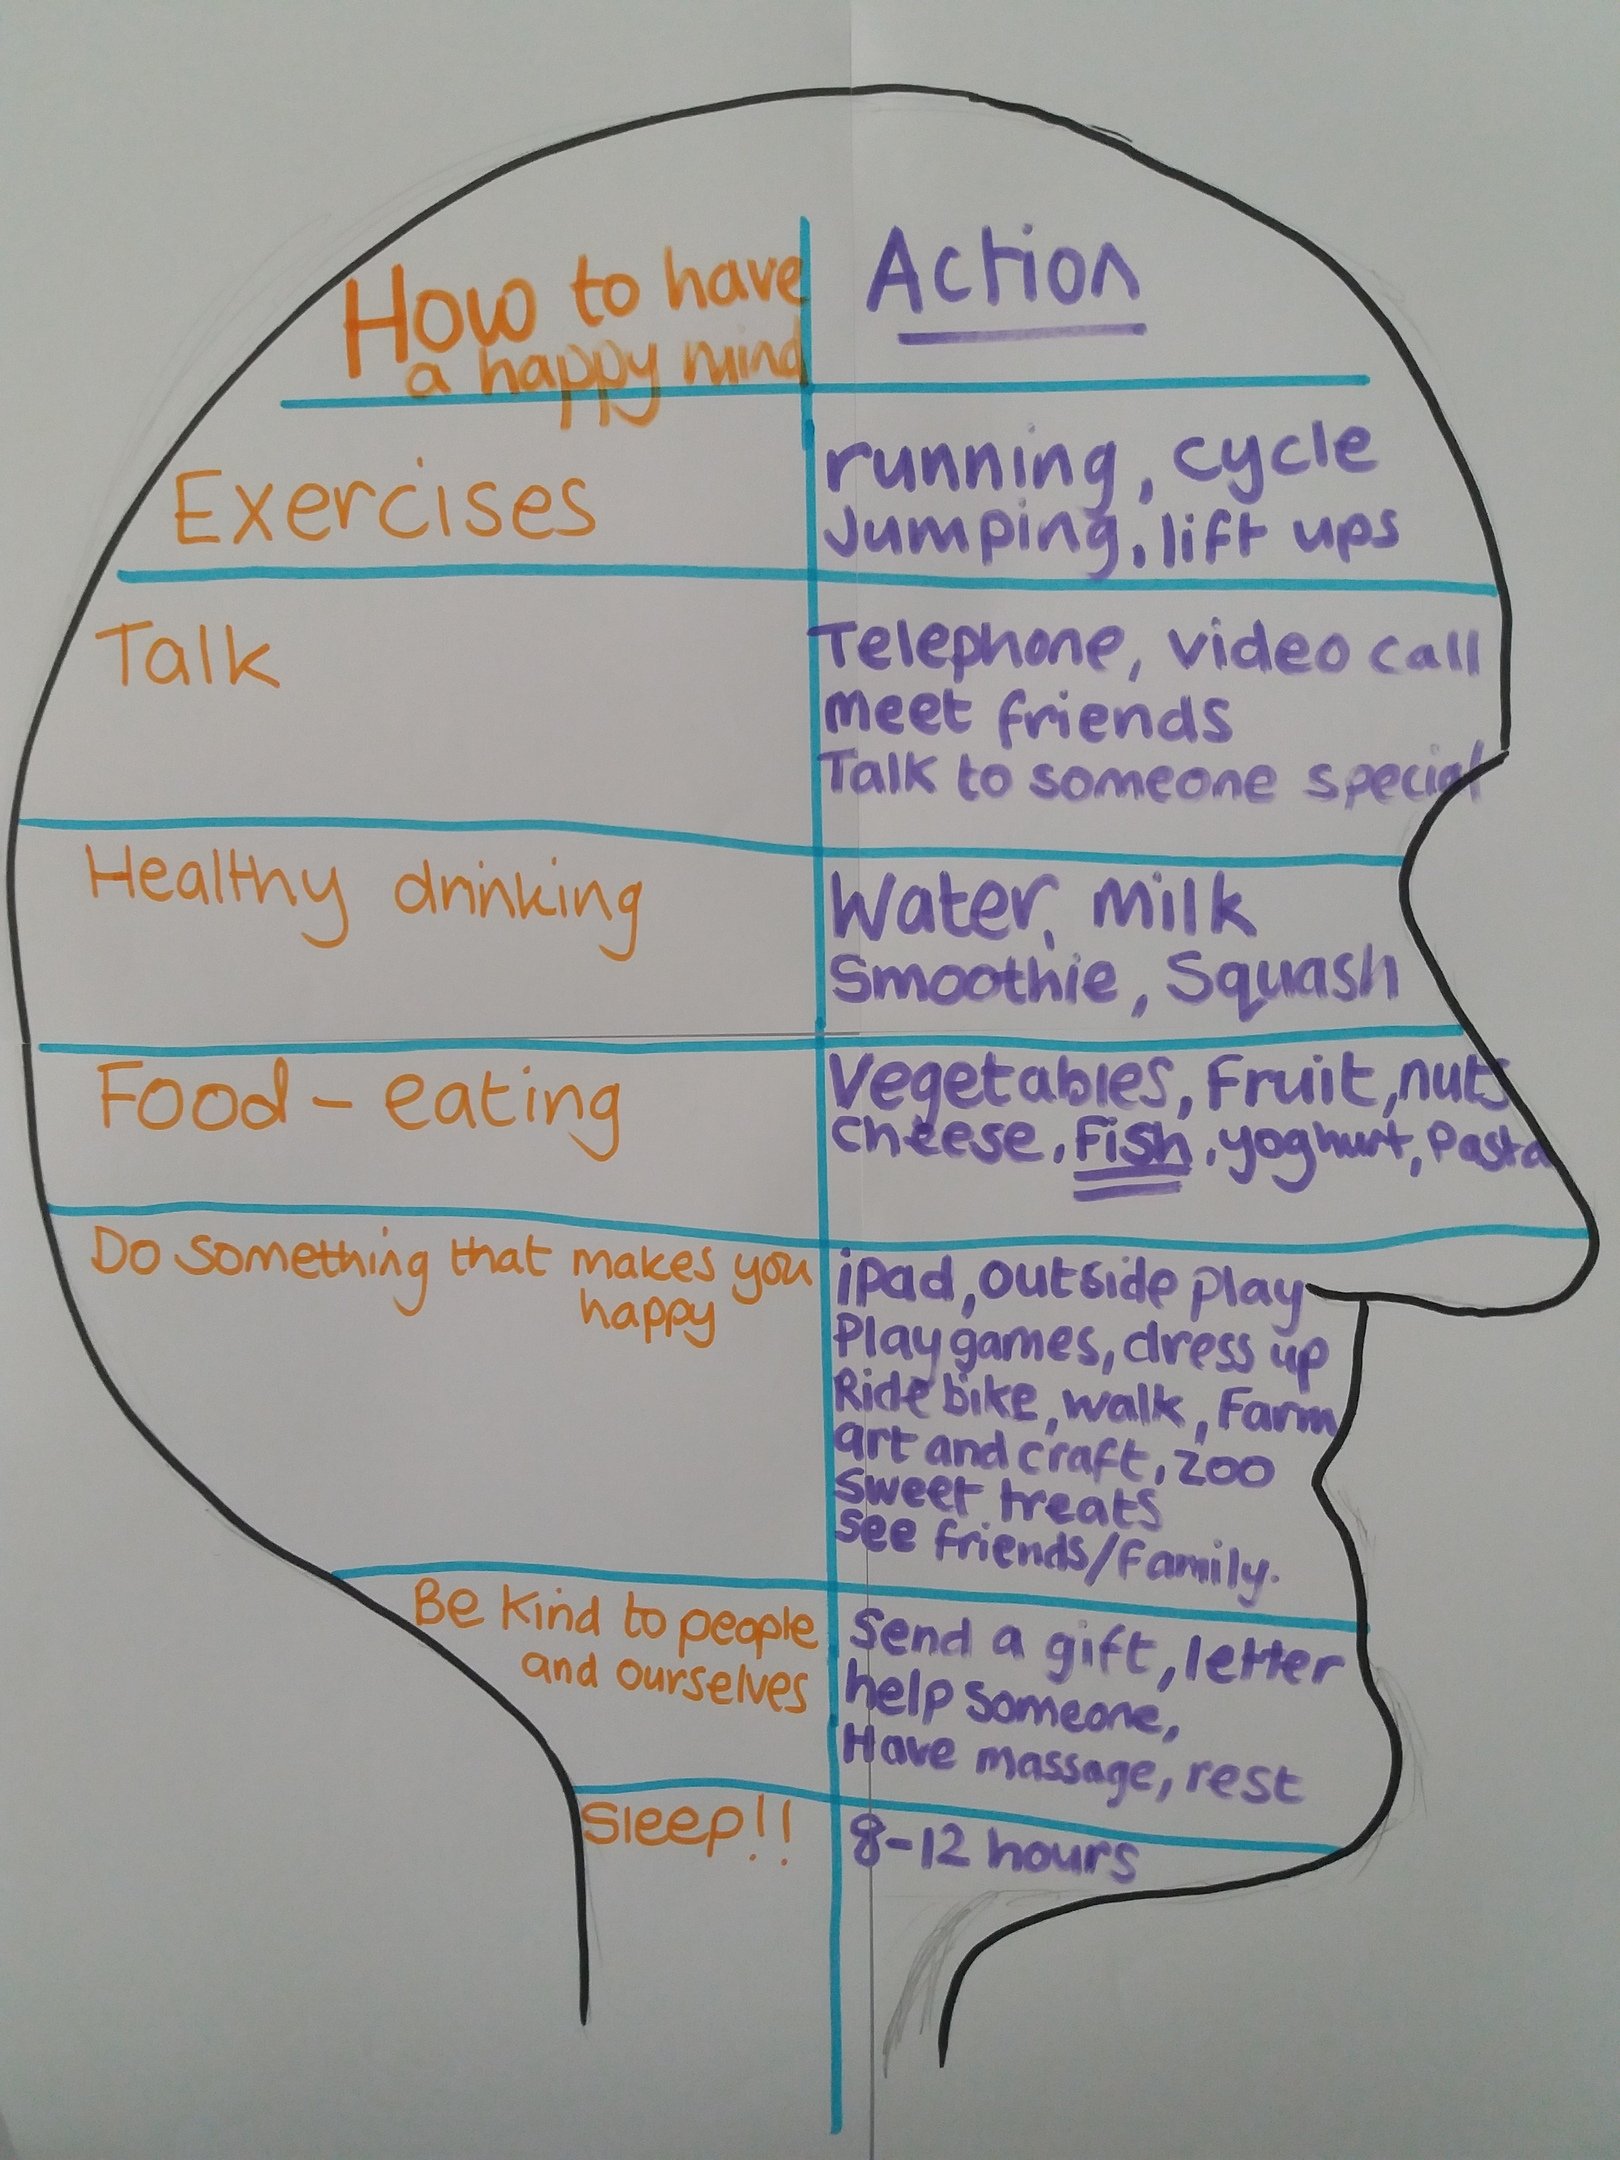 How to have
a happy mind
Action
Exercises
running, cycle
Jumping, lift ups
Talk
Telephone, video call
meet friends
Talk to someone special
Healthy drinking
Water, milk
Smoothie, Squash
Food - eating
Vegetables, Fruit, nuts
cheese, Fish, yoghurt, Pasta
Do something that makes you
happy
iPad, outside play
Play games, dress up
Ride bike, walk, Farm
art and craft, zoo
Sweet treats
see friends/Family.
Be Kind to people
and ourselves
Send a gift, letter
help someone,
Have massage, rest
Sleep!!
8-12 hours